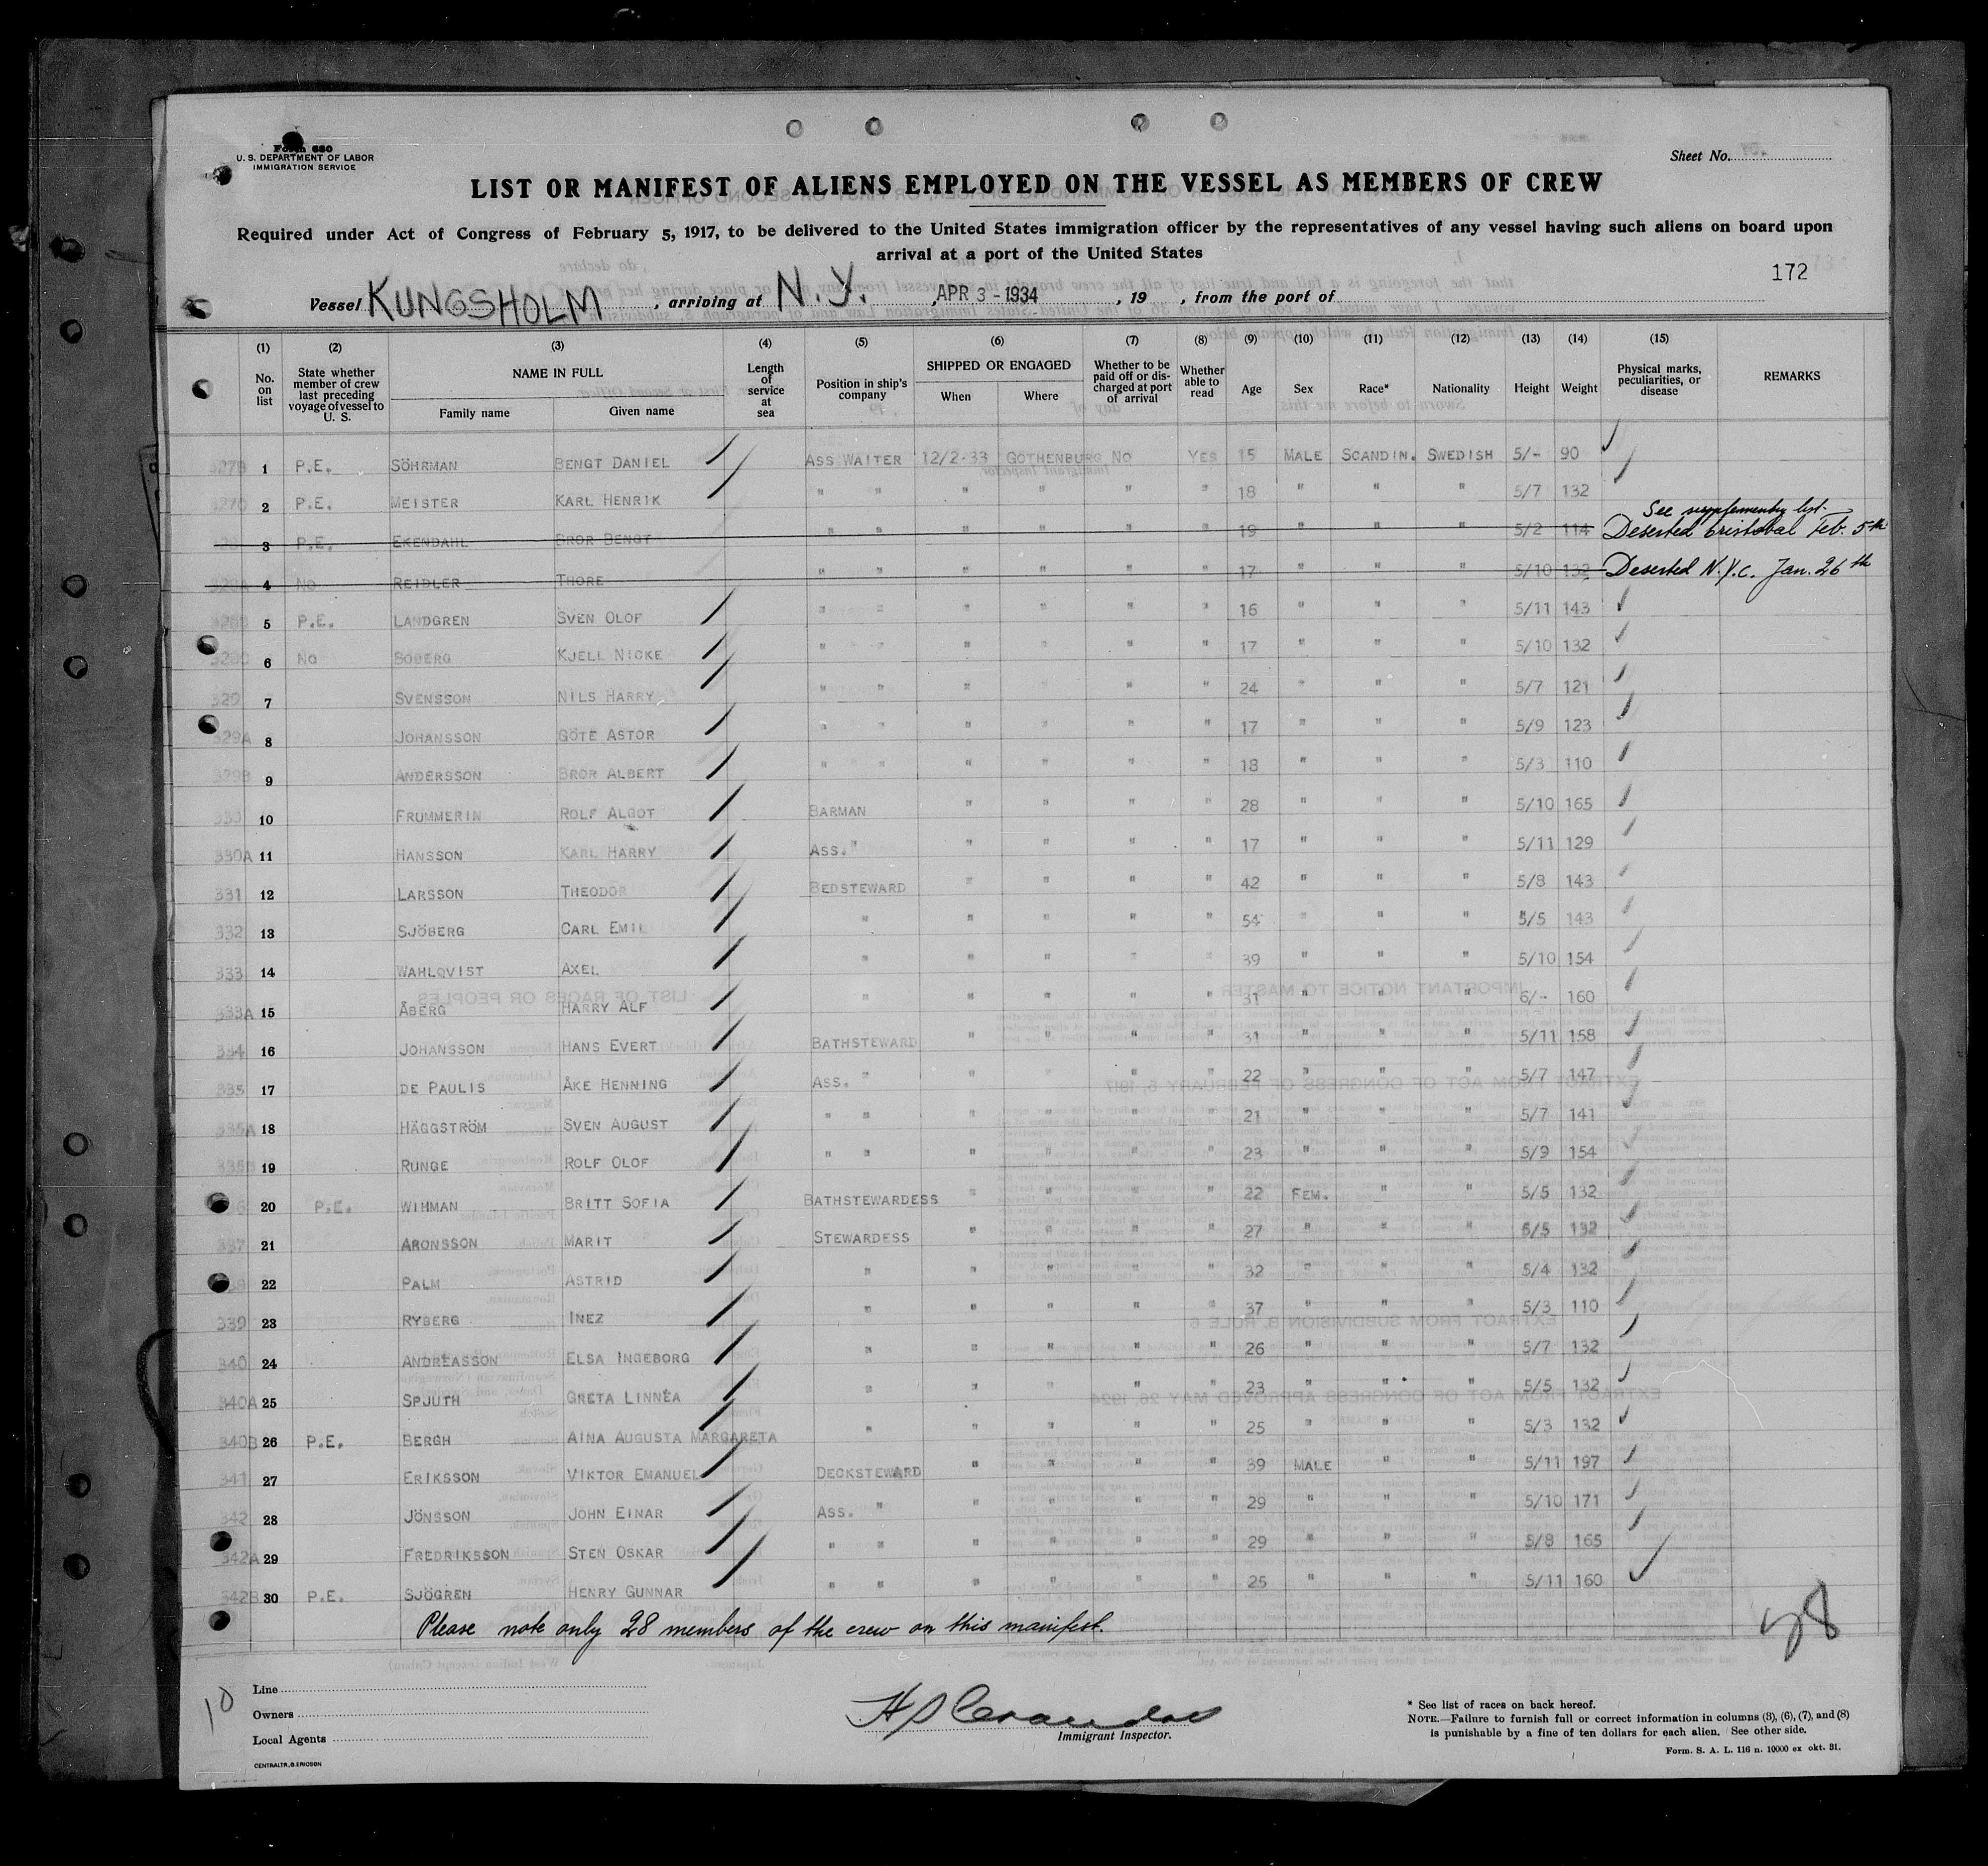 Form 680
U. S. DEPARTMENT OF LABOR
IMMIGRATION SERVICE
Sheet No.
LIST OR MANIFEST OF ALIENS EMPLOYED ON THE VESSEL AS MEMBERS OF CREW
Required under Act of Congress of February 5, 1917, to be delivered to the United States immigration officer by the representatives of any vessel having such aliens on board upon
arrival at a port of the United States
172
Vessel KUNGSHOLM, arriving at N.Y., APR 3 - 1934, 19 , from the port of
(1) (2) (3) (4) (5) (6) (7) (8) (9) (10) (11) (12) (13) (14) (15)
No. on list State whether member of crew last preceding voyage of vessel to U. S. NAME IN FULL Family name Given name Length of service at sea Position in ship's company SHIPPED OR ENGAGED When Where Whether to be paid off or discharged at port of arrival Whether able to read Age Sex Race* Nationality Height Weight Physical marks, peculiarities, or disease REMARKS
1 P.E. SÖHRMAN BENGT DANIEL ASS WAITER 12/2-33 GOTHENBURG NO YES 15 MALE SCANDIN. SWEDISH 5/- 90
2 P.E. MEISTER KARL HENRIK " " " " " " 18 " " " 5/7 132
See supplementry list.
3 P.E. EKENDAHL BROR BENGT " " " " " " 19 " " " 5/2 114 Deserted Cristobal Feb. 5th
4 NO REIDLER THORE " " " " " " 17 " " " 5/10 132 Deserted N.Y.C. Jan. 26th
5 P.E. LANDGREN SVEN OLOF " " " " " " 16 " " " 5/11 143
6 NO BOBERG KJELL NICKE " " " " " " 17 " " " 5/10 132
329 7 SVENSSON NILS HARRY " " " " " " 24 " " " 5/7 121
329A 8 JOHANSSON GÖTE ASTOR " " " " " " 17 " " " 5/9 123
329B 9 ANDERSSON BROR ALBERT " " " " " " 18 " " " 5/3 110
330 10 FRUMMERIN ROLF ALGOT BARMAN " " " " 28 " " " 5/10 165
330A 11 HANSSON KARL HARRY ASS. " " " " " 17 " " " 5/11 129
331 12 LARSSON THEODOR BEDSTEWARD " " " " 42 " " " 5/8 143
332 13 SJÖBERG CARL EMIL " " " " " 54 " " " 5/5 143
333 14 WAHLQVIST AXEL " " " " " 39 " " " 5/10 154
333A 15 ÅBERG HARRY ALF " " " " " 31 " " " 6/- 160
334 16 JOHANSSON HANS EVERT BATHSTEWARD " " " " 31 " " " 5/11 158
335 17 DE PAULIS ÅKE HENNING ASS. " " " " " 22 " " " 5/7 147
335A 18 HÄGGSTRÖM SVEN AUGUST " " " " " " 21 " " " 5/7 141
335B 19 RUNGE ROLF OLOF " " " " " " 23 " " " 5/9 154
20 P.E. WIHMAN BRITT SOFIA BATHSTEWARDESS " " " " 22 FEM. " " 5/5 132
337 21 ARONSSON MARIT STEWARDESS " " " " 27 " " " 5/5 132
22 PALM ASTRID " " " " " 32 " " " 5/4 132
339 23 RYBERG INEZ " " " " " 37 " " " 5/3 110
340 24 ANDREASSON ELSA INGEBORG " " " " " 26 " " " 5/7 132
340A 25 SPJUTH GRETA LINNÉA " " " " " 23 " " " 5/5 132
340B 26 P.E. BERGH AINA AUGUSTA MARGARETA " " " " " 25 " " " 5/3 132
341 27 ERIKSSON VIKTOR EMANUEL DECKSTEWARD " " " " 39 MALE " " 5/11 197
342 28 JÖNSSON JOHN EINAR ASS. " " " " " 29 " " " 5/10 171
342A 29 FREDRIKSSON STEN OSKAR " " " " " " 29 " " " 5/8 165
342B 30 P.E. SJÖGREN HENRY GUNNAR " " " " " " 25 " " " 5/11 160
Please note only 28 members of the crew on this manifest.
28
10
Line
Owners
Local Agents
Immigrant Inspector.
* See list of races on back hereof.
NOTE.—Failure to furnish full or correct information in columns (3), (6), (7), and (8)
is punishable by a fine of ten dollars for each alien. See other side.
Form. S. A. L. 116 n. 10000 ex okt. 31.
CENTRALTR., G. ERICSON